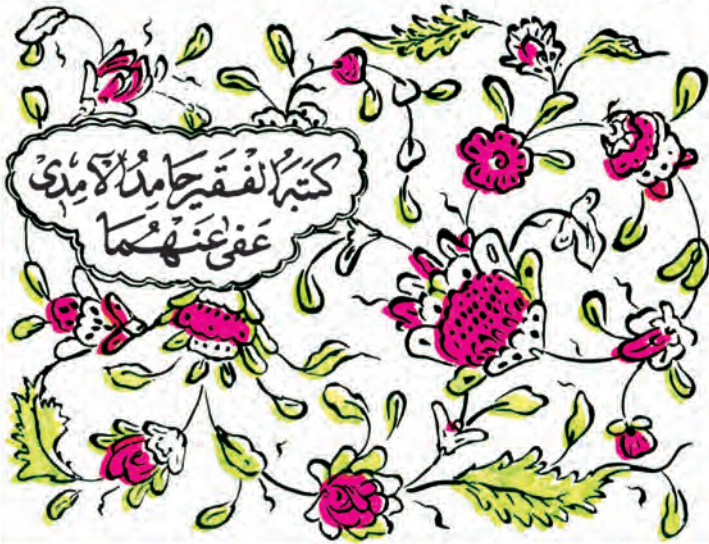 كتبه الفقير حامد الآمدى
عفى عنهما